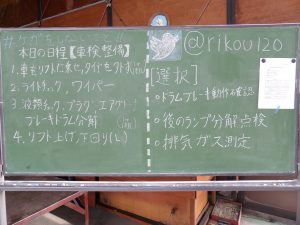 #ケガをしないこと!!
本日の日程【車検整備】
1.車をリフトに乗せ、タイヤを外す
2.ライトチェック、ワイパー
3.液類チェック、プラグ、エアクリ
ブレーキドラム分解
4.リフト上げ、下回り(し)
@rikou120
[選択]
○ドラムブレーキ動作確認
○後のランプ分解点検
○排気ガス測定